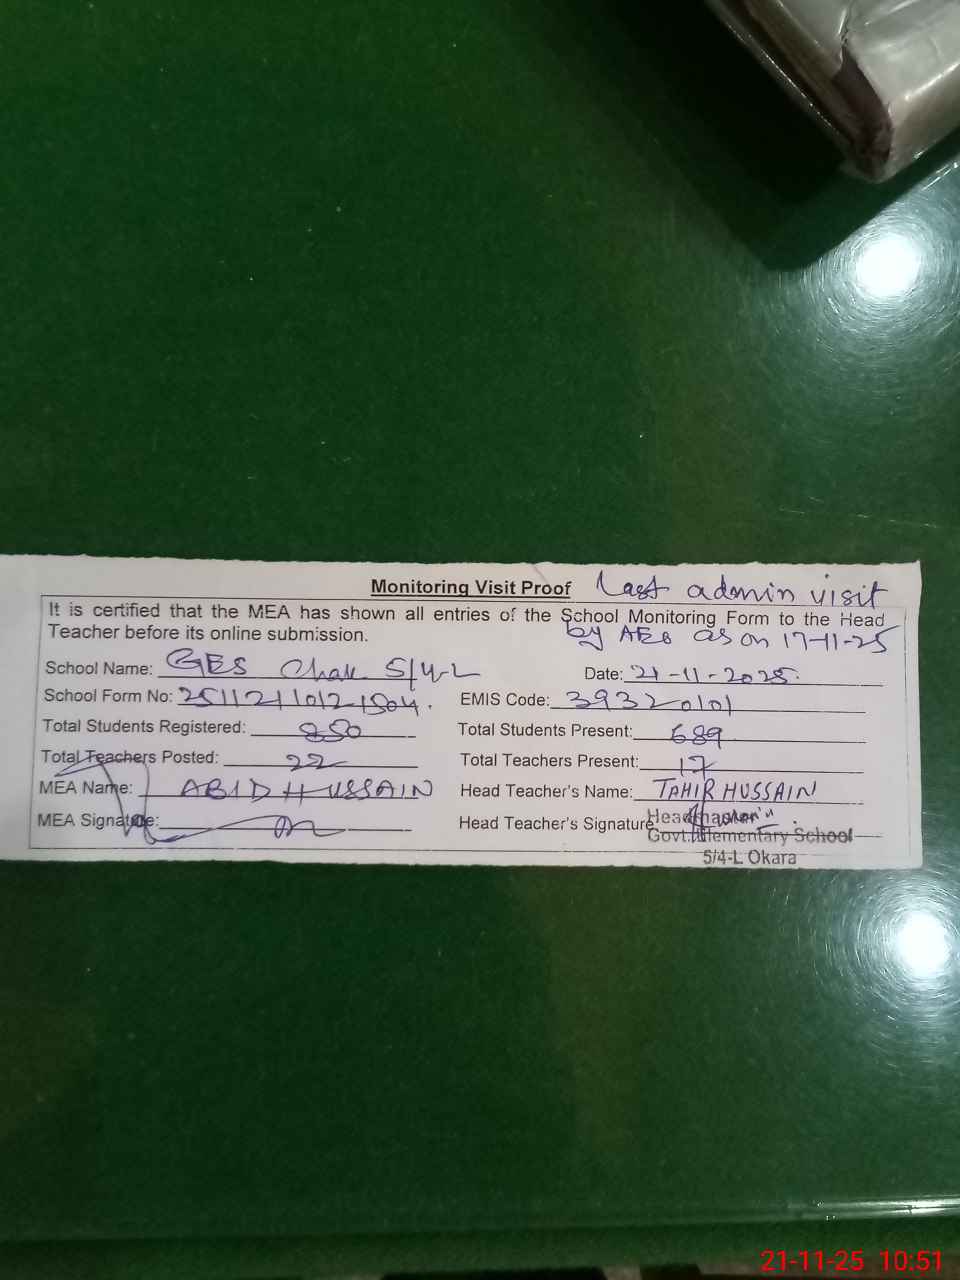 Monitoring Visit Proof Last admin visit
by AEO as on 17-11-25
It is certified that the MEA has shown all entries of the School Monitoring Form to the Head
Teacher before its online submission.
School Name: GES Chak 5/4-L Date: 21-11-2025.
School Form No: 2511211012-1504. EMIS Code: 39320101
Total Students Registered: 850 Total Students Present: 689
Total Teachers Posted: 22 Total Teachers Present: 17
MEA Name: ABID HUSSAIN Head Teacher's Name: TAHIR HUSSAIN
MEA Signature: Head Teacher's Signature:
Headmaster
Govt. Elementary School
5/4-L Okara
21-11-25 10:51